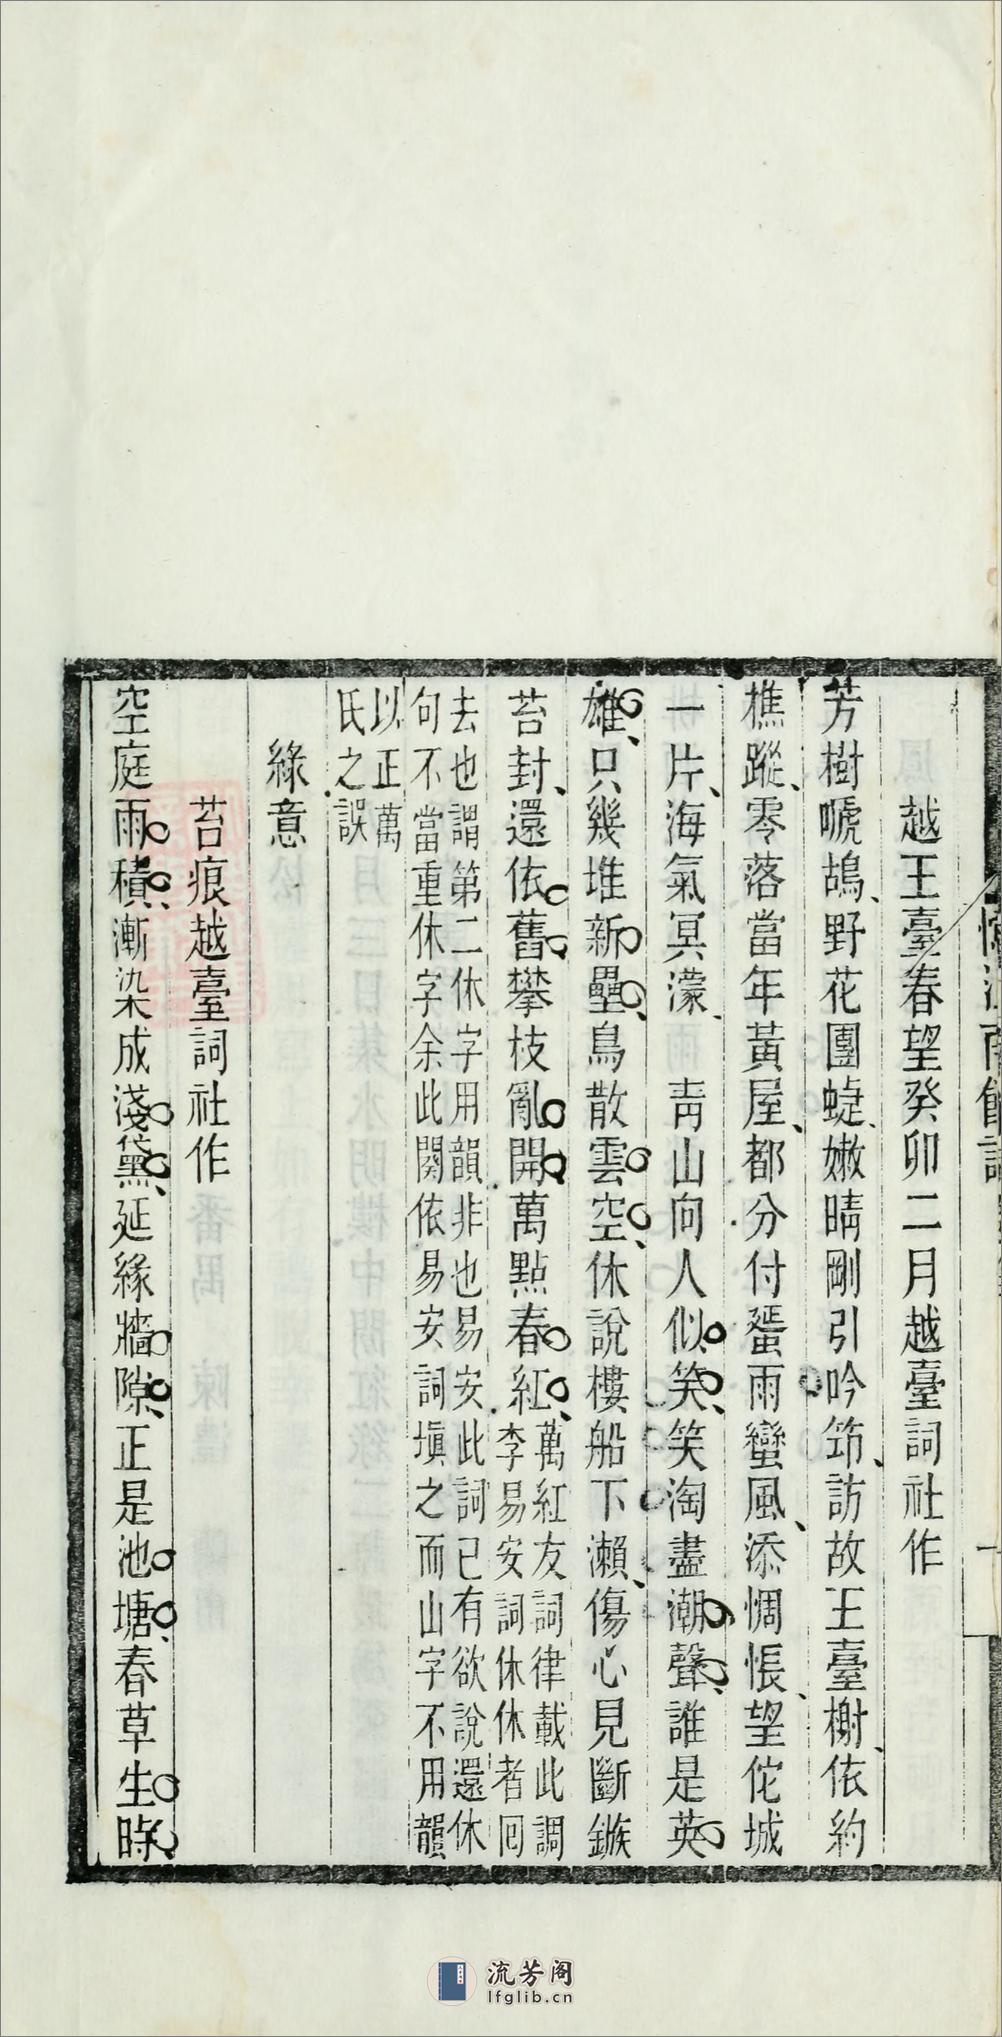 越王臺春望癸卯二月越臺詞社作
芳樹嗁鴣野花團蜨嫩晴剛引吟筇訪故王臺榭依約
樵蹤零落當年黃屋都分付蜑雨蠻風添惆悵望佗城
一片海氣冥濛　靑山向人似笑笑淘盡潮聲誰是英
雄只幾堆新壘鳥散雲空休說樓船下瀨傷心見斷鏃
苔封還依舊攀枝亂開萬點春紅萬紅友詞律載此調
李易安詞休休者回
去也謂第二休字用韻非也易安此詞已有欲說還休
句不當重休字余此闋依易安詞塡之而山字不用韻
以正萬
氏之誤
綠意
苔痕越臺詞社作
空庭雨積漸染成淺黛延緣牆隙正是池塘春草生時
流芳阁
lfglib.cn